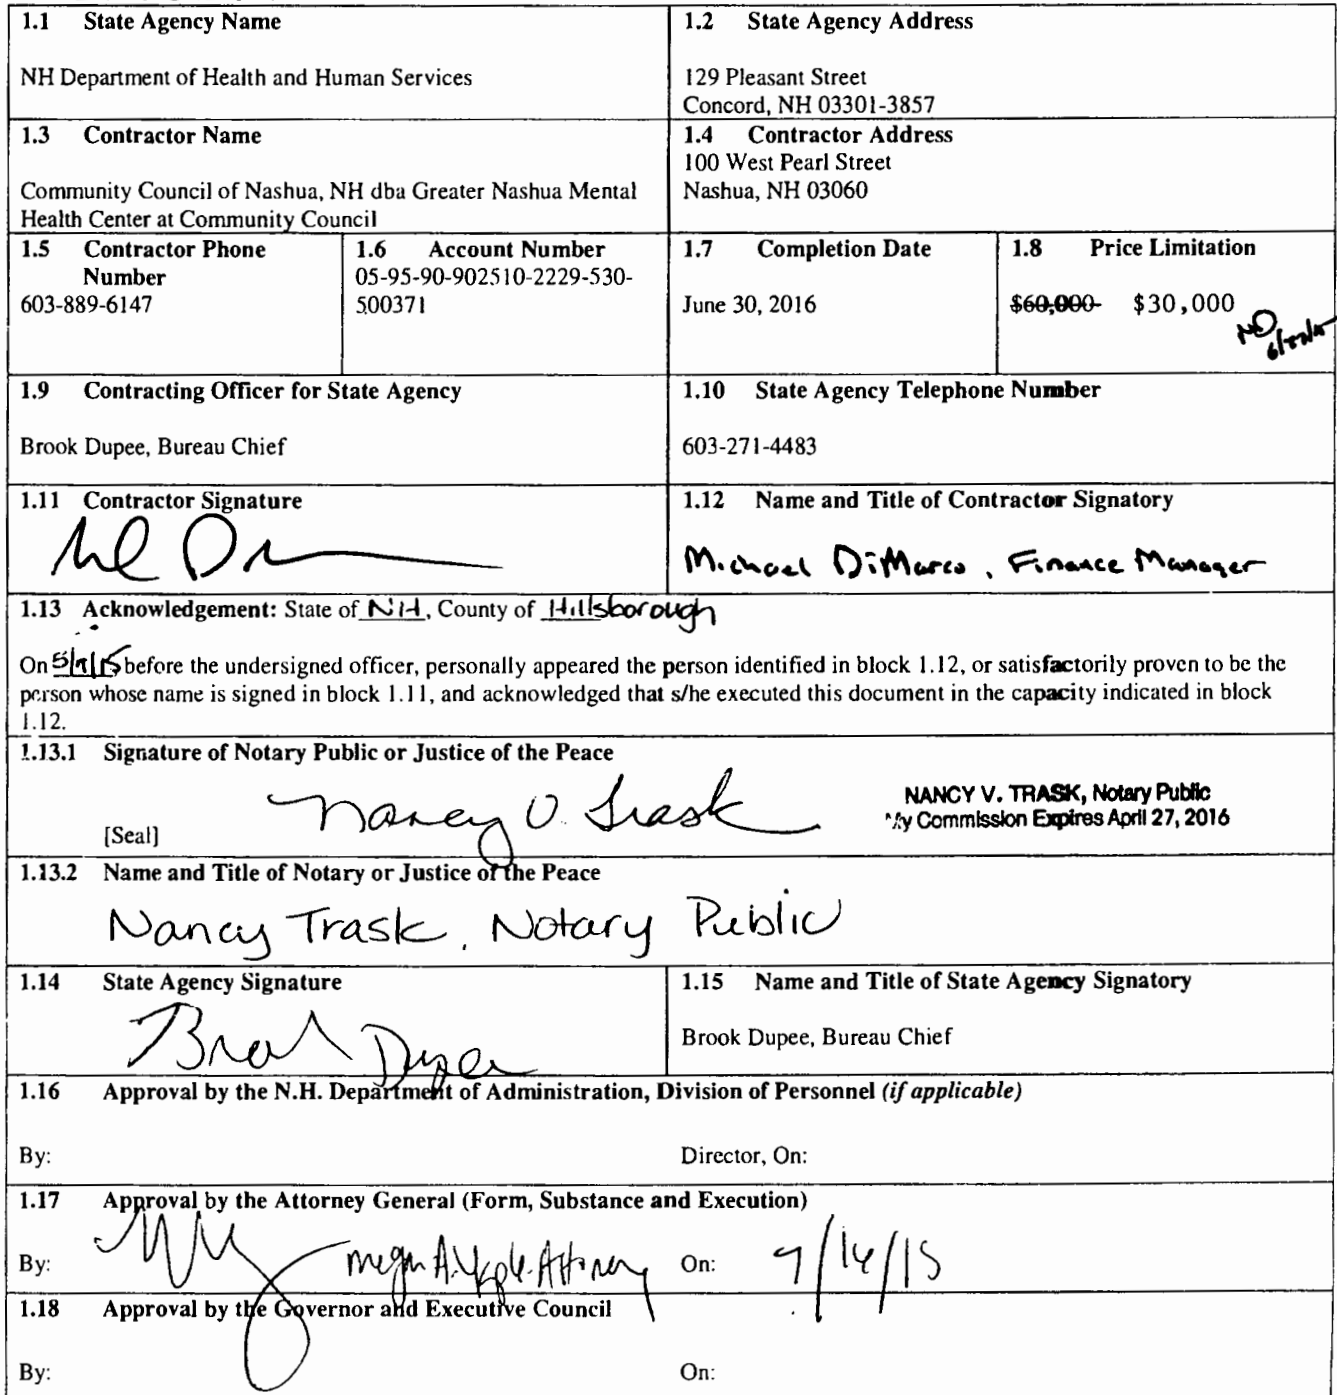 1.1 State Agency Name
NH Department of Health and Human Services
1.2 State Agency Address
129 Pleasant Street
Concord, NH 03301-3857
1.3 Contractor Name
Community Council of Nashua, NH dba Greater Nashua Mental
Health Center at Community Council
1.4 Contractor Address
100 West Pearl Street
Nashua, NH 03060
1.5 Contractor Phone
Number
603-889-6147
1.6 Account Number
05-95-90-902510-2229-530-
500371
1.7 Completion Date
June 30, 2016
1.8 Price Limitation
$60,000 $30,000
MD
1.9 Contracting Officer for State Agency
Brook Dupee, Bureau Chief
1.10 State Agency Telephone Number
603-271-4483
1.11 Contractor Signature
1.12 Name and Title of Contractor Signatory
Michael DiMarco, Finance Manager
1.13 Acknowledgement: State of NH, County of Hillsborough
On before the undersigned officer, personally appeared the person identified in block 1.12, or satisfactorily proven to be the
person whose name is signed in block 1.11, and acknowledged that s/he executed this document in the capacity indicated in block
1.12.
1.13.1 Signature of Notary Public or Justice of the Peace
Nancy V. Trask
NANCY V. TRASK, Notary Public
My Commission Expires April 27, 2016
[Seal]
1.13.2 Name and Title of Notary or Justice of the Peace
Nancy Trask, Notary Public
1.14 State Agency Signature
Brook Dupee
1.15 Name and Title of State Agency Signatory
Brook Dupee, Bureau Chief
1.16 Approval by the N.H. Department of Administration, Division of Personnel (if applicable)
By: Director, On:
1.17 Approval by the Attorney General (Form, Substance and Execution)
By: Attorney On:
1.18 Approval by the Governor and Executive Council
By: On: